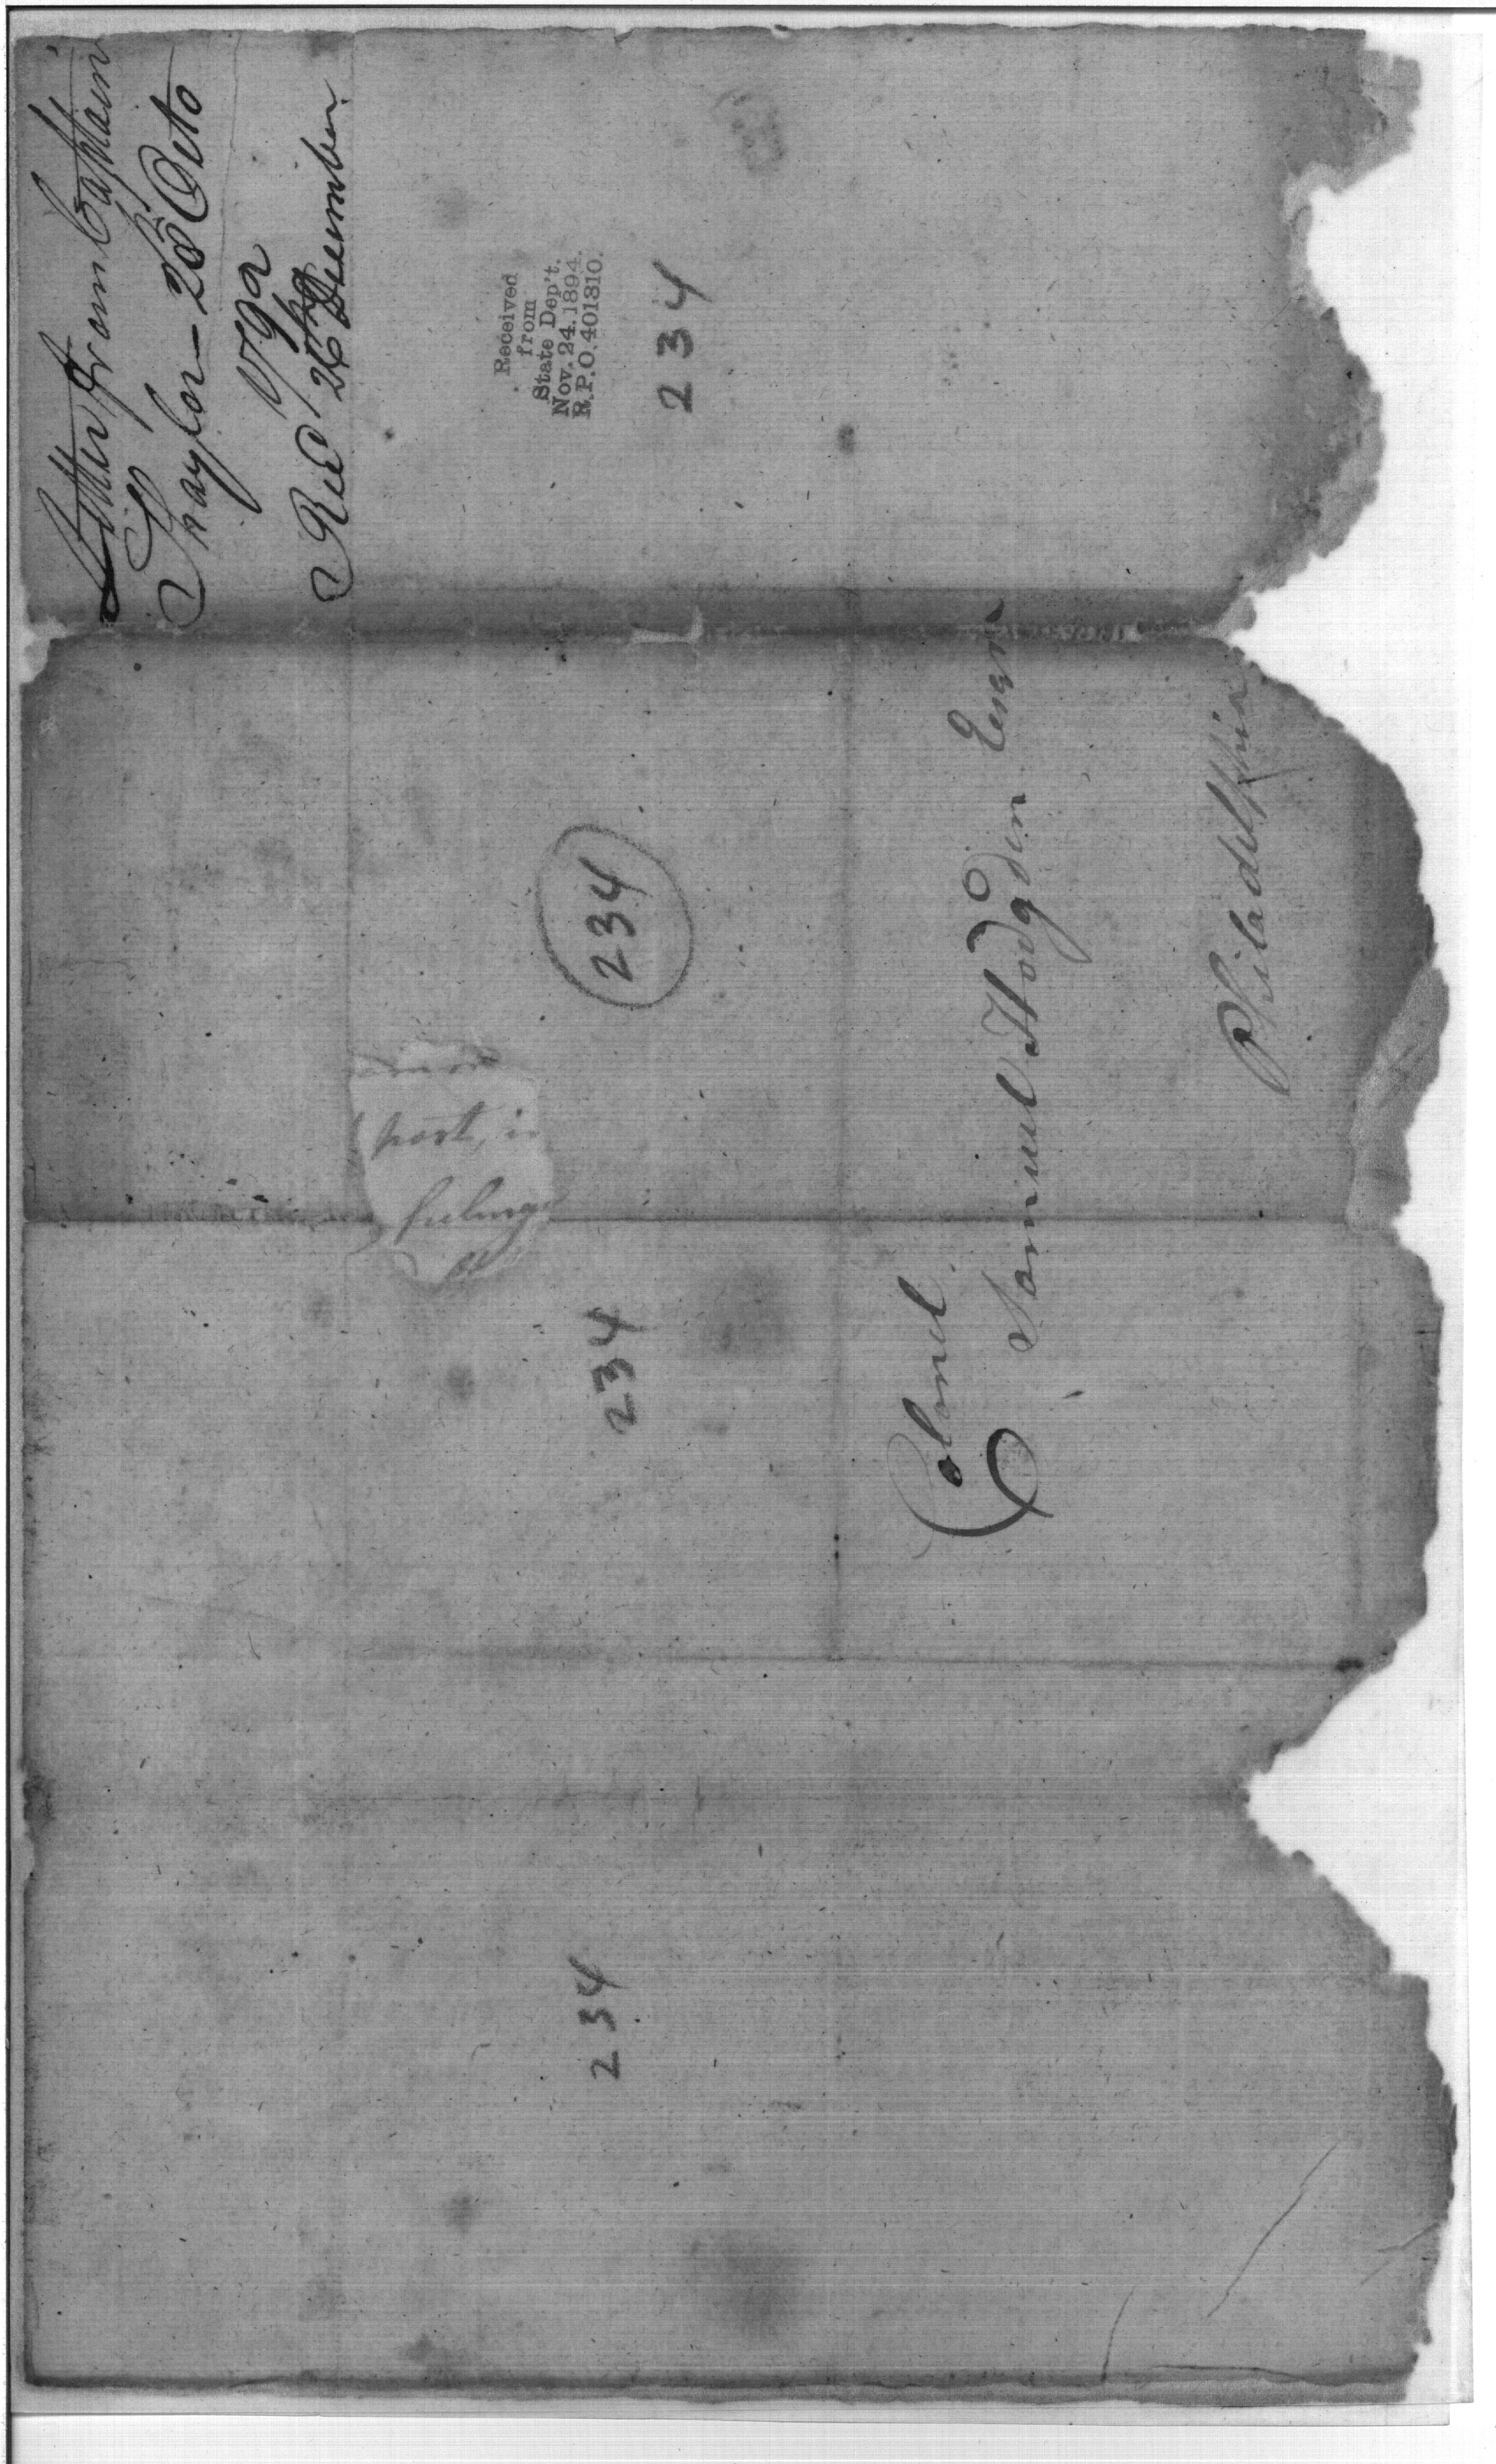 Letter from Captain
Thaylor — 28 Octo
179
Recd 26th December
Received
from
State Dep't.
Nov. 24. 1894.
R.P.O. 401310.
234
234
post, in
feelings
234
Colonel
Samuel Hodgdon Esqr
Philadelphia
234